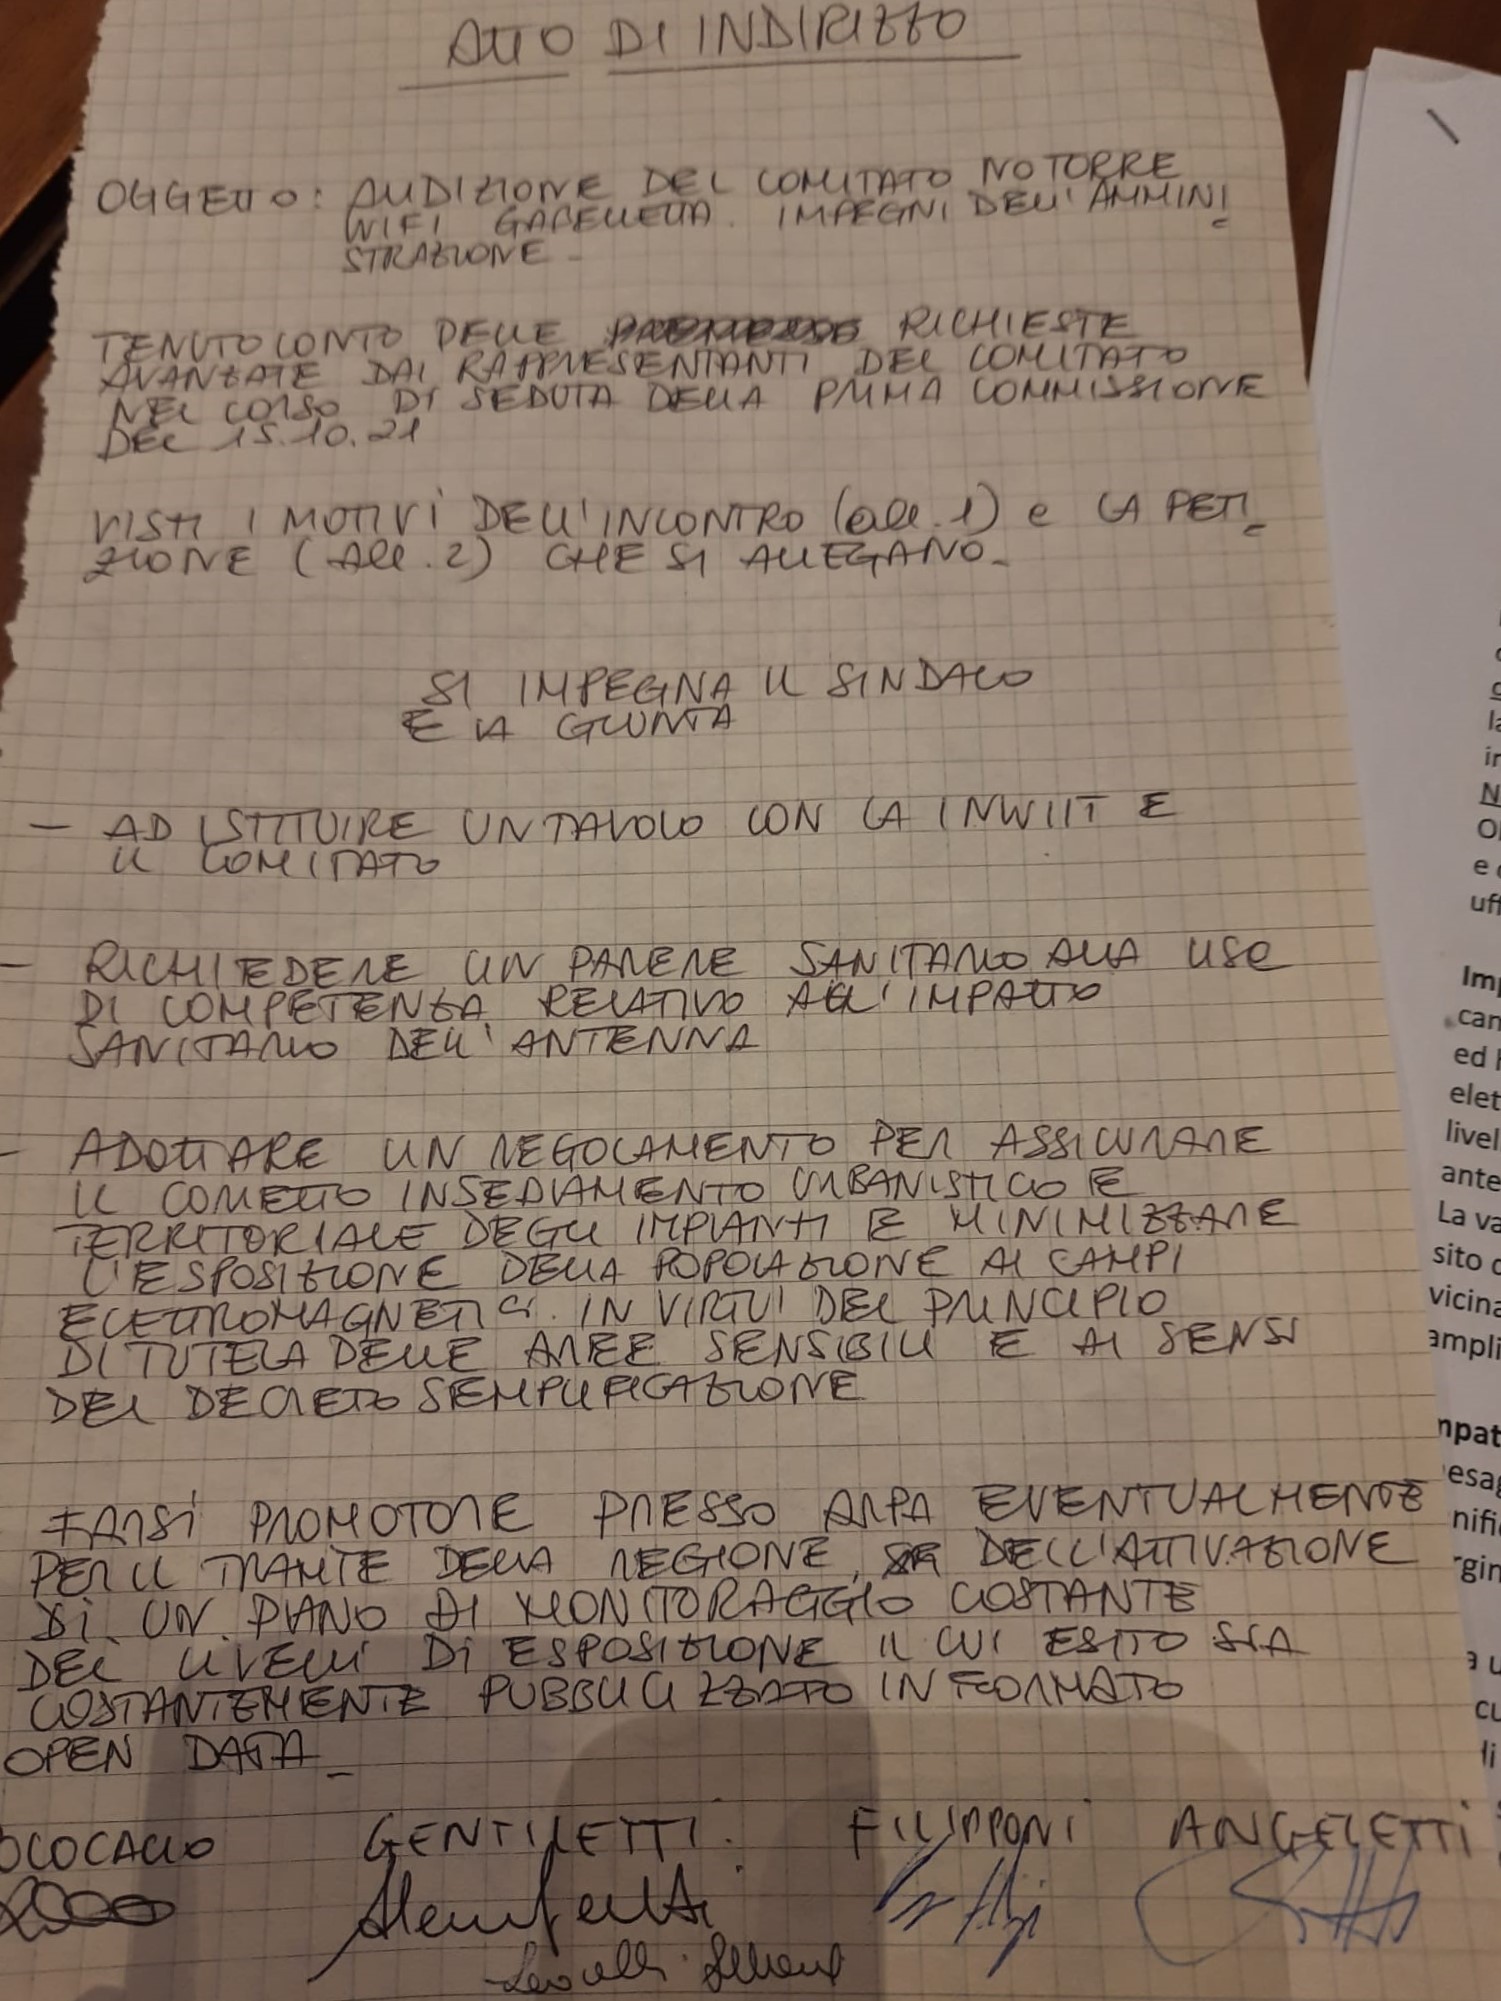 ATTO DI INDIRIZZO
OGGETTO: AUDIZIONE DEL COMITATO NO TORRE
WIFI GABELLETTA. IMPEGNI DELL'AMMINI
STRAZIONE -
TENUTO CONTO DELLE RICHIESTE
AVANZATE DAI RAPPRESENTANTI DEL COMITATO
NEL CORSO DI SEDUTA DELLA PRIMA COMMISSIONE
DEL 15.10.21
VISTI I MOTIVI DELL'INCONTRO (all. 1) e LA PETI
ZIONE (All. 2) CHE SI ALLEGANO -
SI IMPEGNA IL SINDACO
E LA GIUNTA
- AD ISTITUIRE UN TAVOLO CON LA INWIIT E
IL COMITATO
- RICHIEDERE UN PARERE SANITARIO ALLA USL
DI COMPETENZA RELATIVO ALL'IMPATTO
SANITARIO DELL'ANTENNA
- ADOTTARE UN REGOLAMENTO PER ASSICURARE
IL CORRETTO INSEDIAMENTO URBANISTICO E
TERRITORIALE DEGLI IMPIANTI E MINIMIZZARE
L'ESPOSIZIONE DELLA POPOLAZIONE AI CAMPI
ELETTROMAGNETICI. IN VIRTU' DEL PRINCIPIO
DI TUTELA DELLE AREE SENSIBILI E AI SENSI
DEL DECRETO SEMPLIFICAZIONE
- FARSI PROMOTORE PRESSO ARPA EVENTUALMENTE
PER IL TRAMITE DELLA REGIONE, DELL'ATTIVAZIONE
DI UN PIANO DI MONITORAGGIO COSTANTE
DEL LIVELLI DI ESPOSIZIONE IL CUI ESITO SIA
COSTANTEMENTE PUBBLICIZZATO IN FORMATO
OPEN DATA -
GENTILETTI. FILIPPONI ANGELETTI
Imp
can
ed
elet
livel
ante
La va
sito
vicina
ampli